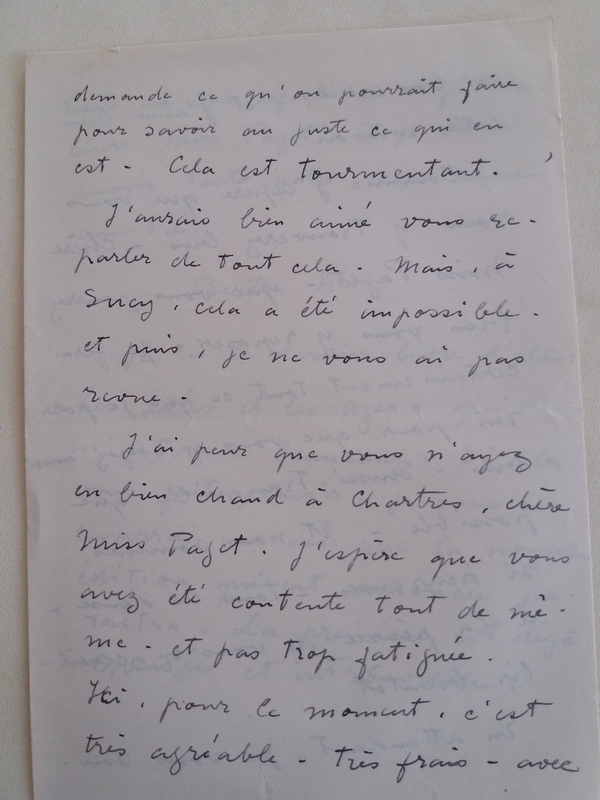 demande ce qu'on pourrait faire
pour savoir au juste ce qui en
est - Cela est tourmentant.
J'aurais bien aimé vous re-
parler de tout cela - Mais, à
Sucy, cela a été impossible -
et puis, je ne vous ai pas
revue -
J'ai peur que vous n'ayez
eu bien chaud à Chartres, chère
Miss Paget. J'espère que vous
avez été contente tout de mê-
me - et pas trop fatiguée.
Ici, pour le moment, c'est
très agréable - très frais - avec